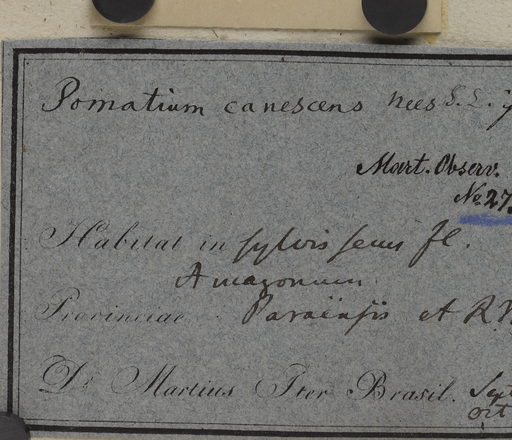 Pomatium canescens Nees
Mart. Observ.
No 27
Habitat in sylvis secus fl.
Amazonum
Provinciae Paraënsis et R.
Dr Martius Iter Brasil. Sept
Oct